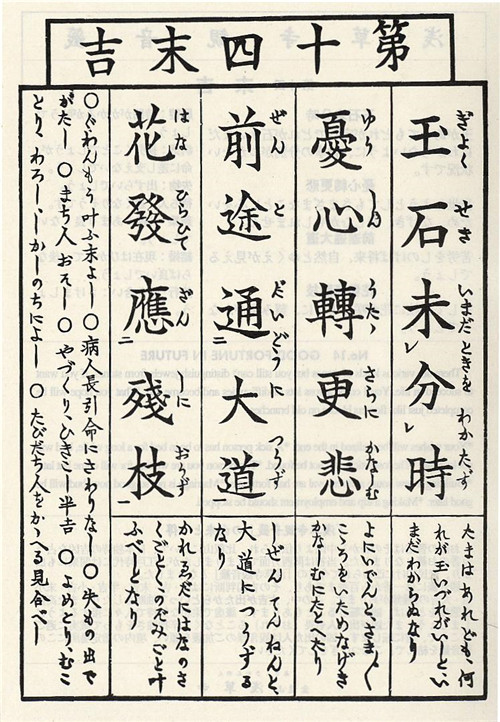 第十四末吉
ぎよく せき いまだときを わかたず
玉石未分時
ゆう しん うたゝ さらに かなしむ
憂心轉更悲
ぜん だいどうに つうず
前途通大道
はな ひらひて ざんしに おうず
花發應殘枝
たまはあれども、何
れが玉いづれがいしとい
まだわからぬなり
よにいでんと、さま〲
こころをいためなげき
かなしむにたとへたり
しぜんてんねんと、
大道につうずる
なり
かれゑだにはなのさ
くごとくのぞみごと叶
ふべしとなり
〇ぐわんもう叶ふ末よし 〇病人長引命にさわりなし 〇失もの出で
がたし 〇まち人おそし 〇やづくり、ひきこし半吉 〇よめとり、むこ
とり、わろし、しかしのちによし 〇たびだち人をかゝへる見合べし